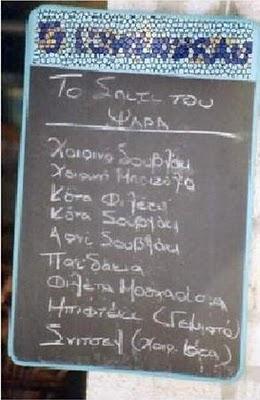 Το Σπιτι του
ΨΑΡΑ
Χοιρινο Σουβλακι
Χοιρινη Μπριζολα
Κοτα Φιλετο
Κοτα Σουβλακι
Αρνι Σουβλακι
Παϊδακια
Φιλετα Μοσχαρισια
Μπιφτεκι (Γεμιστο)
Σνιτσελ (Χοιρ.